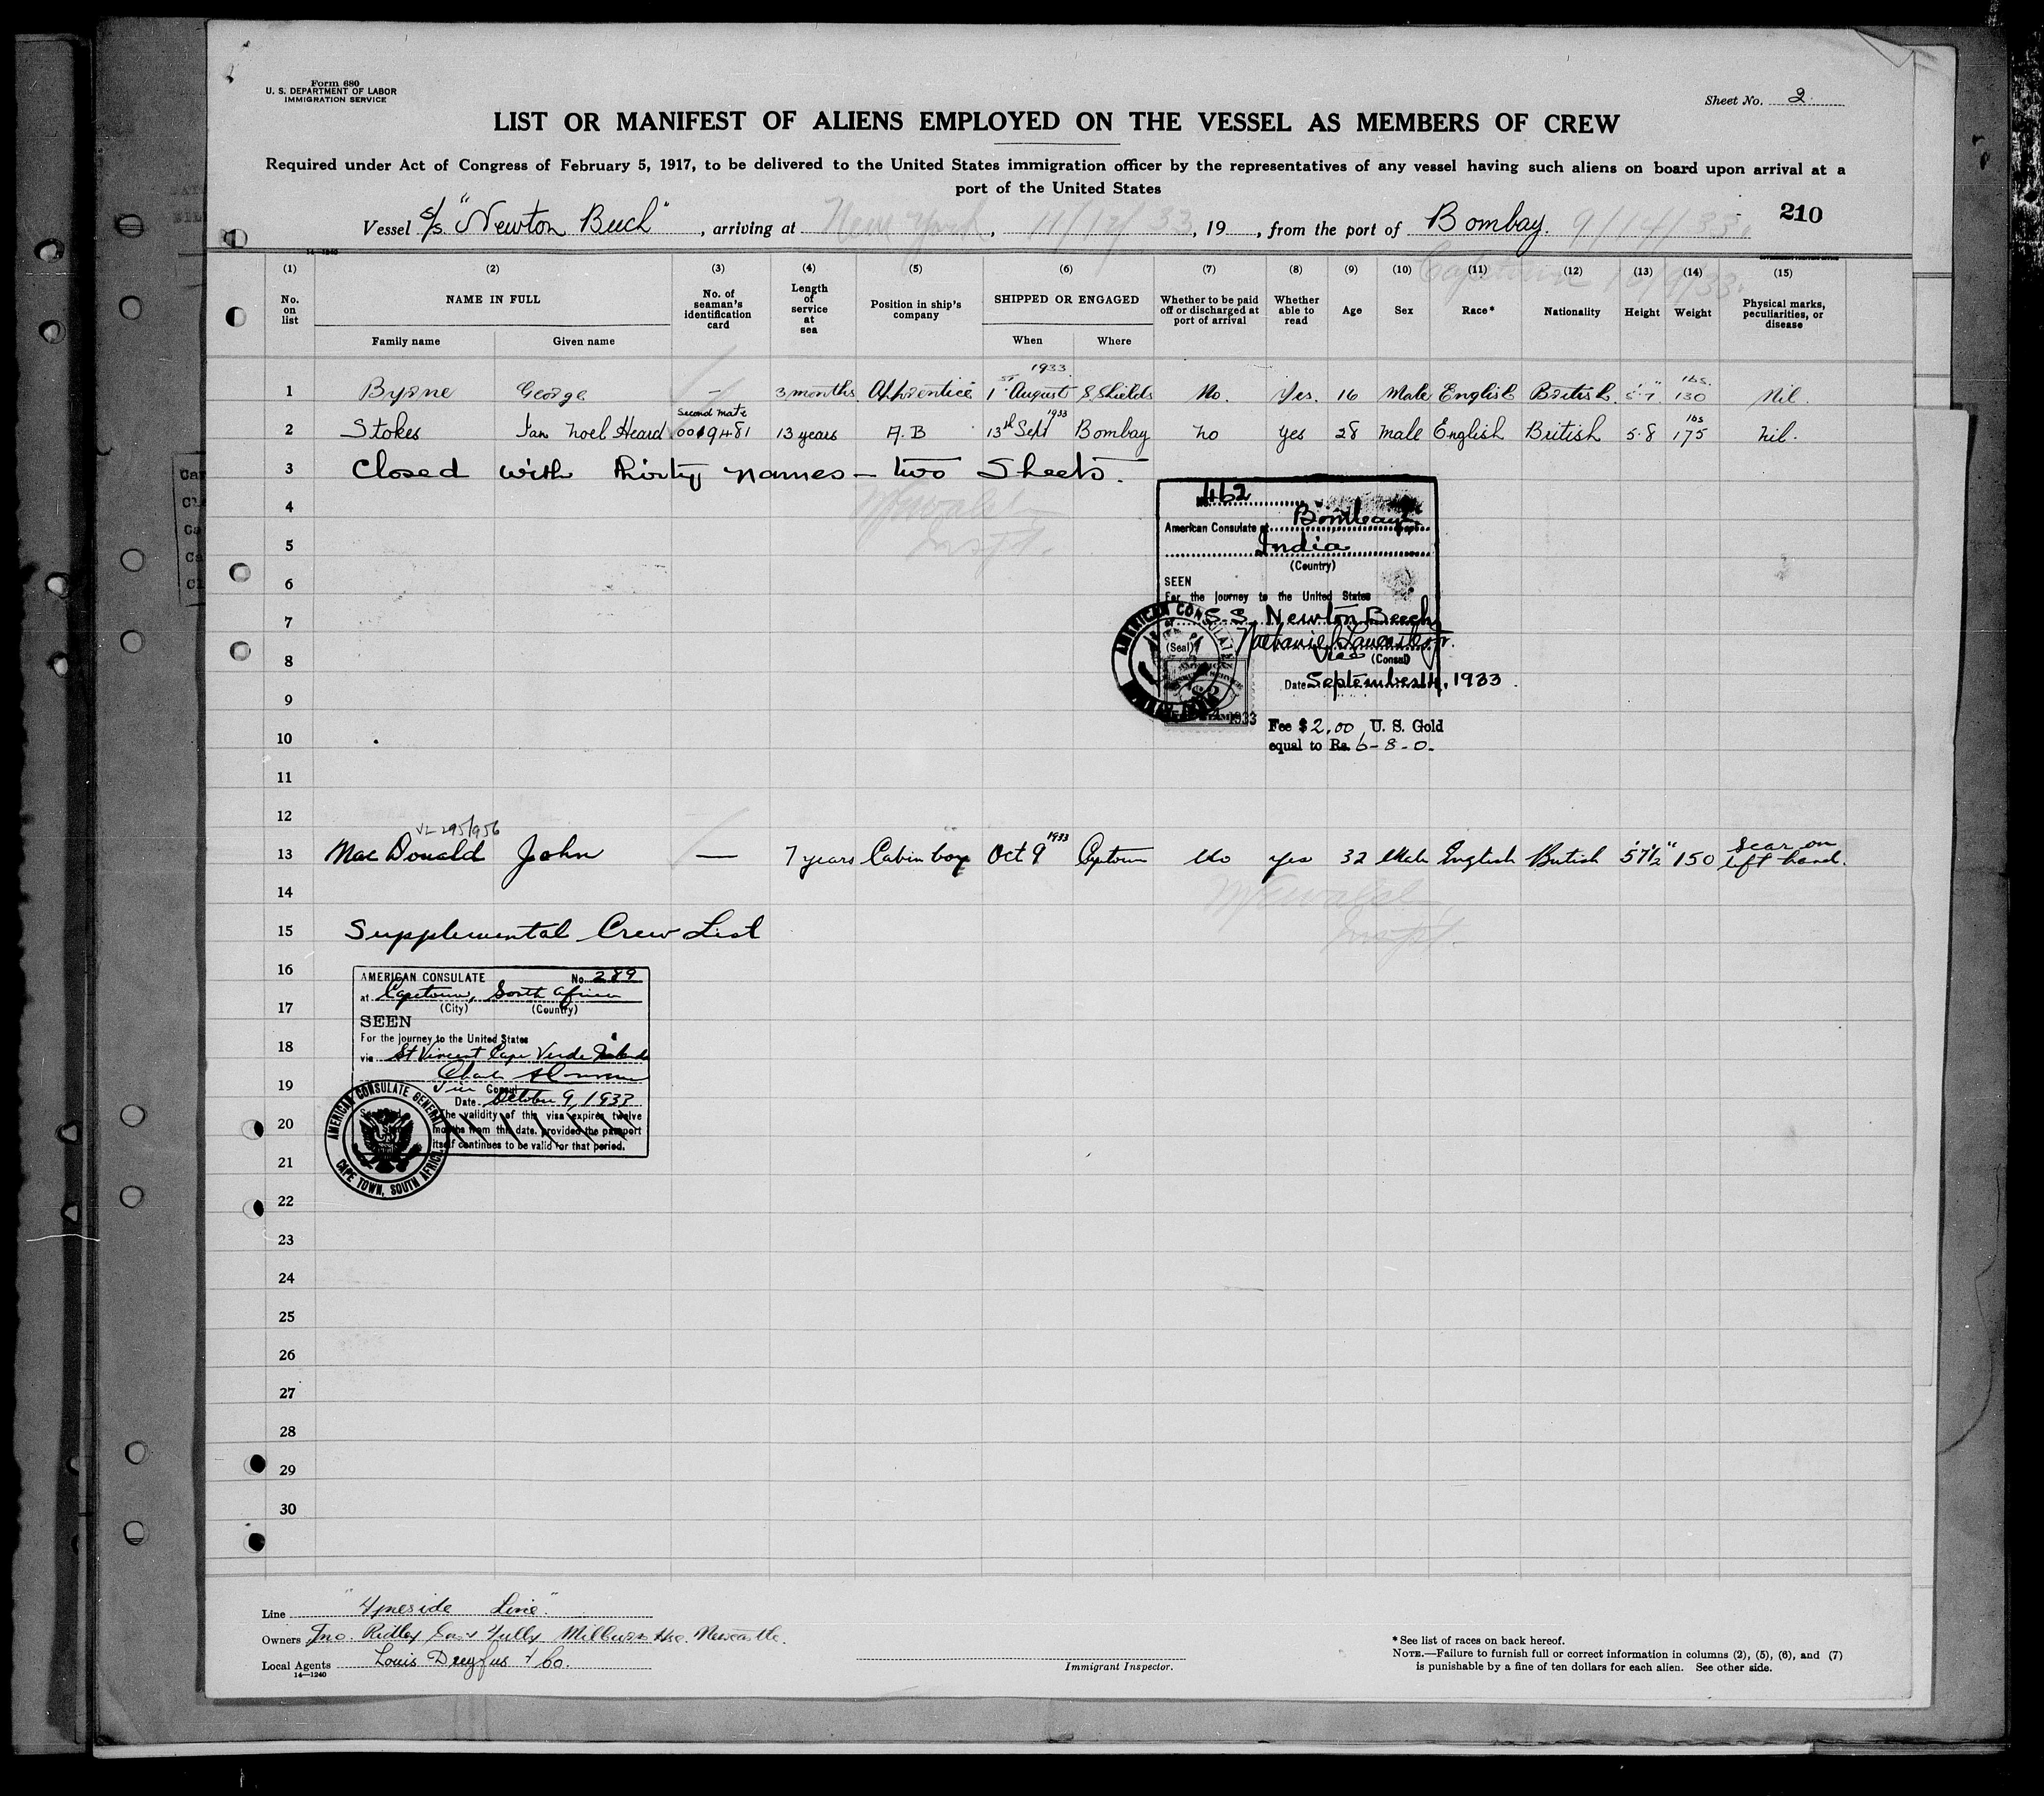 Form 680
U. S. DEPARTMENT OF LABOR
IMMIGRATION SERVICE
Sheet No. 2
LIST OR MANIFEST OF ALIENS EMPLOYED ON THE VESSEL AS MEMBERS OF CREW
Required under Act of Congress of February 5, 1917, to be delivered to the United States immigration officer by the representatives of any vessel having such aliens on board upon arrival at a
port of the United States
Vessel S/S. "Newton Beech", arriving at New York, 11/12/33, 19 , from the port of Bombay. 9/14/33. 210
14-1240
Capetown 10/9/33.
(1) (2) (3) (4) (5) (6) (7) (8) (9) (10) (11) (12) (13) (14) (15)
No. on list NAME IN FULL No. of seaman's identification card Length of service at sea Position in ship's company SHIPPED OR ENGAGED Whether to be paid off or discharged at port of arrival Whether able to read Age Sex Race* Nationality Height Weight Physical marks, peculiarities, or disease
Family name Given name When Where
1 Byrne George - 3 months Apprentice 1st August 1933 S. Shields No. Yes. 16 Male English British 5'7" 130 lbs. Nil.
2 Stokes Ian Noel Heard Second mate 0019481 13 years A.B 13th Sept 1933 Bombay No Yes 28 Male English British 5.8 175 lbs Nil.
3 Closed with thirty names - two Sheets.
4
5
6
7
8
9
10
11
12
13 MacDonald John — 7 years Cabin boy Oct 9 1933 Captown No yes 32 Male English British 5'7½" 150 Scar on left hand.
14
15 Supplemental Crew List
16
17
18
19
20
21
22
23
24
25
26
27
28
29
30
No. 462
American Consulate at Bombay,
India
(Country)
SEEN
For the journey to the United States
S.S. Newton Beech
Vice (Consul)
(Seal)
Date September 14, 1933
AMERICAN CONSULATE
Fee $2.00 U. S. Gold
equal to Rs. 6-8-0.
AMERICAN CONSULATE No. 289
at Capetown, South Africa
(City) (Country)
SEEN
For the journey to the United States
via St Vincent Cape Verde Islands
Vice Consul
Date October 9, 1933
The validity of this visa expires twelve
months from this date, provided the passport
itself continues to be valid for that period.
AMERICAN CONSULATE GENERAL
CAPE TOWN, SOUTH AFRICA
Line "Tyneside Line".
Owners Jno. Ridley Son & Tully Milburn Hse. Newcastle.
Local Agents Louis Dreyfus & Co.
14-1240
Immigrant Inspector.
* See list of races on back hereof.
NOTE.—Failure to furnish full or correct information in columns (2), (5), (6), and (7)
is punishable by a fine of ten dollars for each alien. See other side.